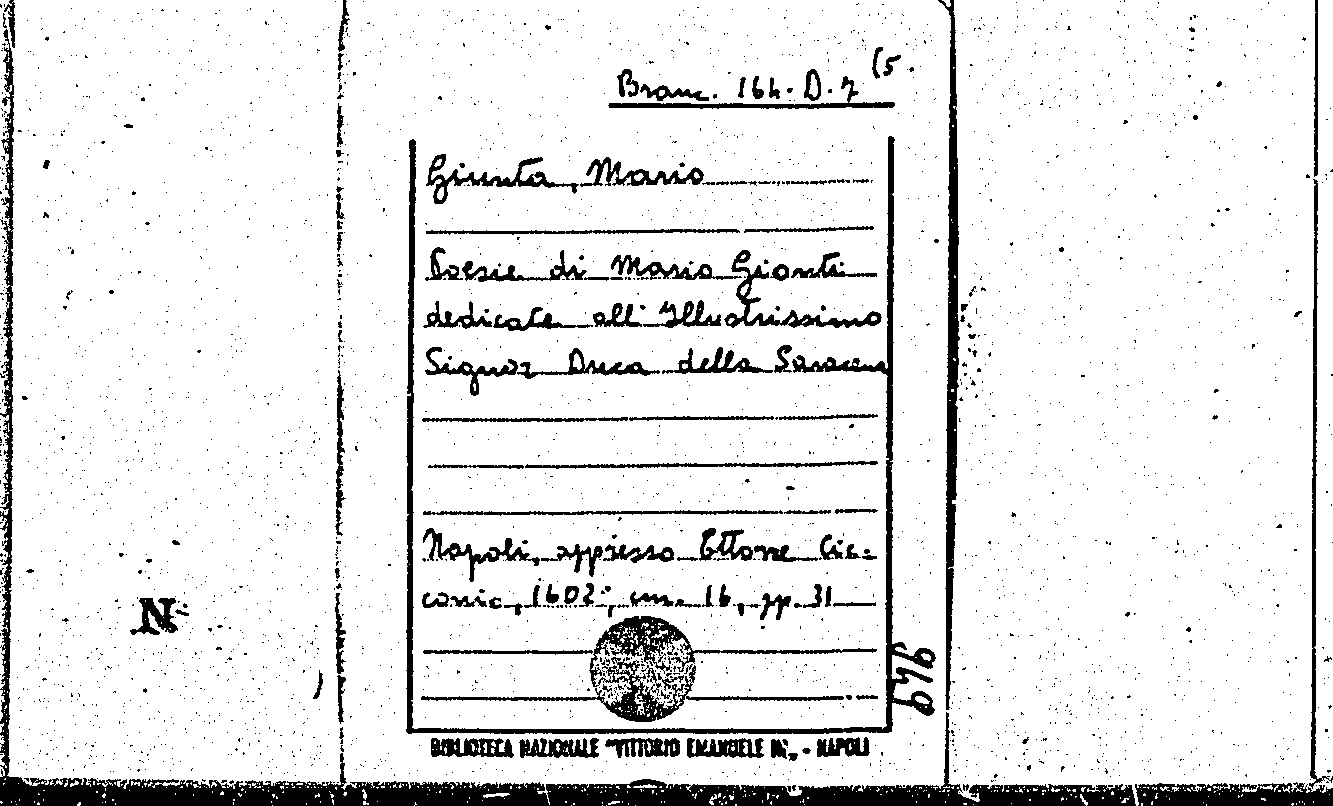 Branc. 164. D. 7 (5.
Giunta, Mario
Poesie di Mario Gionti
dedicate all'Illustrissimo
Signor Duca della Saracena
Napoli, appresso Ettorre Cic-
conio, 1602; cm. 16, pp. 31
BIBLIOTECA NAZIONALE "VITTORIO EMANUELE III" - NAPOLI
N